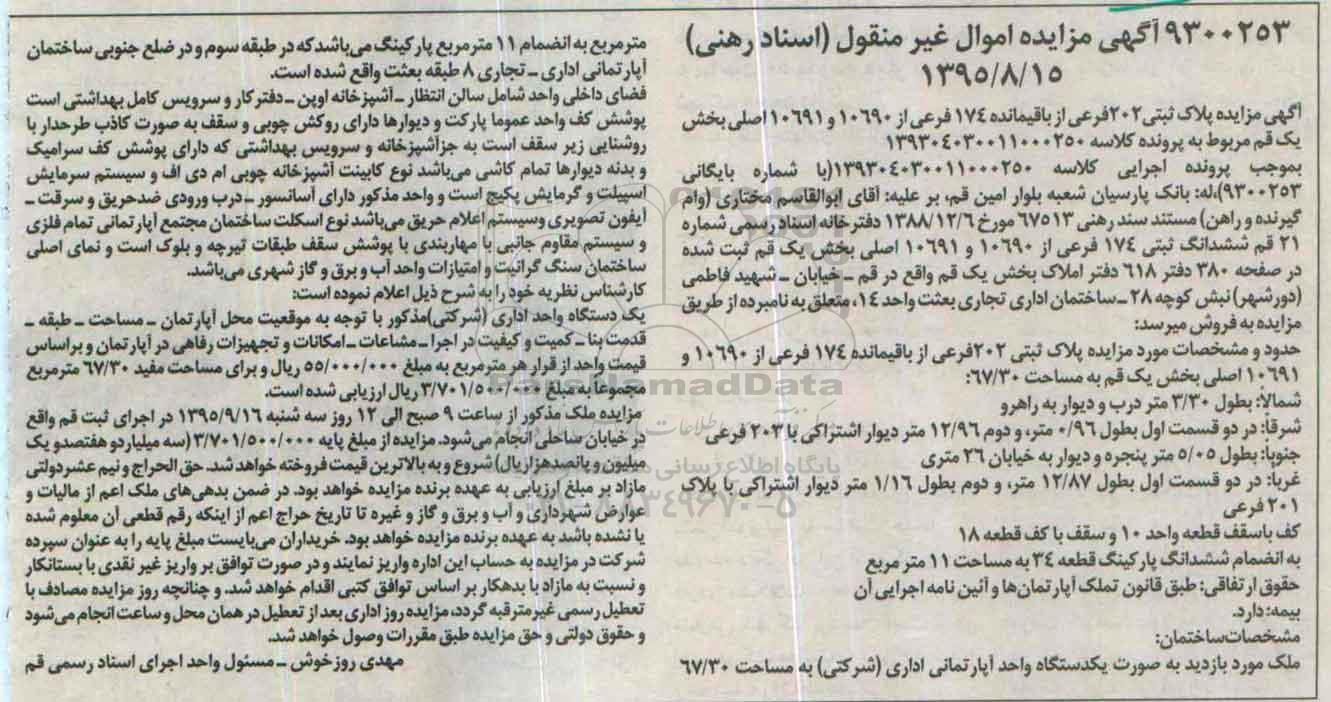 ۹۳۰۰۲۵۳ آگهی مزایده اموال غیر منقول (اسناد رهنی)
۱۳۹۵/۸/۱۵
آگهی مزایده پلاک ثبتی ۲۰۲فرعی از باقیمانده ۱۷۴ فرعی از ۱۰۶۹۰ و ۱۰۶۹۱ اصلی بخش
یک قم مربوط به پرونده کلاسه ۱۳۹۳۰۴۰۳۰۰۱۱۰۰۰۲۵۰
بموجب پرونده اجرایی کلاسه ۱۳۹۳۰۴۰۳۰۰۱۱۰۰۰۲۵۰(با شماره بایگانی
۹۳۰۰۲۵۳)،له: بانک پارسیان شعبه بلوار امین قم، بر علیه: آقای ابوالقاسم مختاری (وام
گیرنده و راهن) مستند سند رهنی ۶۷۵۱۳ مورخ ۱۳۸۸/۱۲/۶ دفترخانه اسناد رسمی شماره
۲۱ قم ششدانگ ثبتی ۱۷۴ فرعی از ۱۰۶۹۰ و ۱۰۶۹۱ اصلی بخش یک قم ثبت شده
در صفحه ۳۸۰ دفتر ۶۱۸ دفتر املاک بخش یک قم واقع در قم ـ خیابان ـ شهید فاطمی
(دورشهر) نبش کوچه ۲۸ ـ ساختمان اداری تجاری بعثت واحد ۱۴، متعلق به نامبرده از طریق
مزایده به فروش میرسد:
حدود و مشخصات مورد مزایده پلاک ثبتی ۲۰۲فرعی از باقیمانده ۱۷۴ فرعی از ۱۰۶۹۰ و
۱۰۶۹۱ اصلی بخش یک قم به مساحت ۶۷/۳۰:
شمالاً: بطول ۳/۳۰ متر درب و دیوار به راهرو
شرقاً: در دو قسمت اول بطول ۰/۹۶ متر، و دوم ۱۲/۹۶ متر دیوار اشتراکی با ۲۰۳ فرعی
جنوباً: بطول ۵/۰۵ متر پنجره و دیوار به خیابان ۲۶ متری
غرباً: در دو قسمت اول بطول ۱۲/۸۷ متر، و دوم بطول ۱/۱۶ متر دیوار اشتراکی با پلاک
۲۰۱ فرعی
کف باسقف قطعه واحد ۱۰ و سقف با کف قطعه ۱۸
به انضمام ششدانگ پارکینگ قطعه ۳۴ به مساحت ۱۱ متر مربع
حقوق ارتفاقی: طبق قانون تملک آپارتمان‌ها و آئین نامه اجرایی آن
بیمه: دارد.
مشخصات‌ساختمان:
ملک مورد بازدید به صورت یکدستگاه واحد آپارتمانی اداری (شرکتی) به مساحت ۶۷/۳۰
مترمربع به انضمام ۱۱ مترمربع پارکینگ می‌باشد که در طبقه سوم و در ضلع جنوبی ساختمان
آپارتمانی اداری ـ تجاری ۸ طبقه بعثت واقع شده است.
فضای داخلی واحد شامل سالن انتظار ـ آشپزخانه اوپن ـ دفتر کار و سرویس کامل بهداشتی است
پوشش کف واحد عموما پارکت و دیوارها دارای روکش چوبی و سقف به صورت کاذب طرحدار با
روشنایی زیر سقف است به جزآشپزخانه و سرویس بهداشتی که دارای پوشش کف سرامیک
و بدنه دیوارها تمام کاشی می‌باشد نوع کابینت آشپزخانه چوبی ام دی اف و سیستم سرمایش
اسپیلت و گرمایش پکیج است و واحد مذکور دارای آسانسور ـ درب ورودی ضدحریق و سرقت ـ
آیفون تصویری وسیستم اعلام حریق می‌باشد نوع اسکلت ساختمان مجتمع آپارتمانی تمام فلزی
و سیستم مقاوم جانبی با مهاربندی با پوشش سقف طبقات تیرچه و بلوک است و نمای اصلی
ساختمان سنگ گرانیت و امتیازات واحد آب و برق و گاز شهری می‌باشد.
کارشناس نظریه خود را به شرح ذیل اعلام نموده است:
یک دستگاه واحد اداری (شرکتی)مذکور با توجه به موقعیت محل آپارتمان ـ مساحت ـ طبقه ـ
قدمت بنا ـ کمیت و کیفیت در اجرا ـ مشاعات ـ امکانات و تجهیزات رفاهی در آپارتمان و براساس
قیمت واحد از قرار هر مترمربع به مبلغ ۵۵/۰۰۰/۰۰۰ ریال و برای مساحت مفید ۶۷/۳۰ مترمربع
مجموعاً به مبلغ ۳/۷۰۱/۵۰۰/۰۰۰ ریال ارزیابی شده است.
مزایده ملک مذکور از ساعت ۹ صبح الی ۱۲ روز سه شنبه ۱۳۹۵/۹/۱۶ در اجرای ثبت قم واقع
در خیابان ساحلی انجام می‌شود. مزایده از مبلغ پایه ۳/۷۰۱/۵۰۰/۰۰۰ (سه میلیارد و هفتصدو یک
میلیون و پانصدهزار ریال) شروع و به بالاترین قیمت فروخته خواهد شد. حق الحراج و نیم عشر دولتی
مازاد بر مبلغ ارزیابی به عهده برنده مزایده خواهد بود. در ضمن بدهی‌های ملک اعم از مالیات و
عوارض شهرداری و آب و برق و گاز و غیره تا تاریخ حراج اعم از اینکه رقم قطعی آن معلوم شده
یا نشده باشد به عهده برنده مزایده خواهد بود. خریداران می‌بایست مبلغ پایه را به عنوان سپرده
شرکت در مزایده به حساب این اداره واریز نمایند و در صورت توافق بر واریز غیر نقدی با بستانکار
و نسبت به مازاد با بدهکار بر اساس توافق کتبی اقدام خواهد شد. و چنانچه روز مزایده مصادف با
تعطیل رسمی غیرمترقبه گردد، مزایده روز اداری بعد از تعطیل در همان محل و ساعت انجام می‌شود
و حقوق دولتی و حق مزایده طبق مقررات وصول خواهد شد.
مهدی روزخوش ـ مسئول واحد اجرای اسناد رسمی قم
ParsNamadData
پایگاه اطلاع رسانی